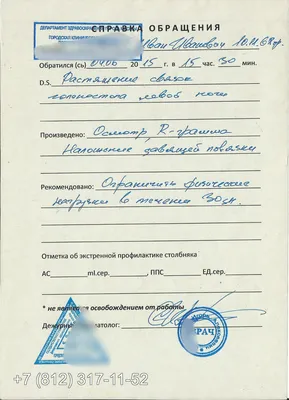 СПРАВКА ОБРАЩЕНИЯ
ДЕПАРТАМЕНТ ЗДРАВООХР
ГОРОДСКАЯ КЛИНИ
Иван Иванович 10.11.68г.
Обратился (сь) 04 06 2015 г. в 15 час. 30 мин.
D.S. Растяжение связок
голеностопа левой ноги
Произведено: Осмотр R-грамма
Наложение давящей повязки
Рекомендовано: Ограничить физические
нагрузки в течении 30 дн.
Отметка об экстренной профилактике столбняка
АС ml.сер. , ППС ЕД.сер.
* не является освобождением от работы
Дежурный матолог:
ВРАЧ
+7 (812) 317-11-52